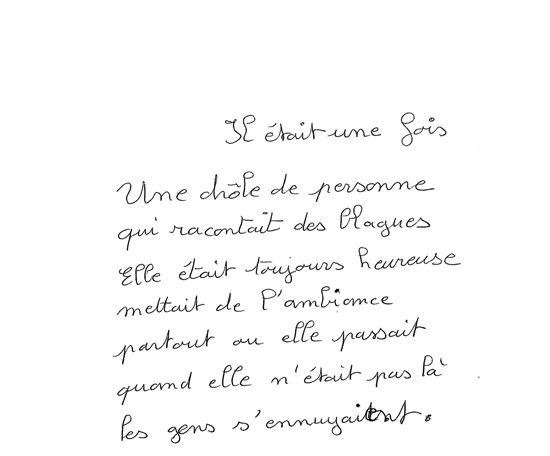 Il était une fois
Une drôle de personne
qui racontait des blagues
Elle était toujours heureuse
mettait de l'ambiance
partout ou elle passait
quand elle n'était pas là
les gens s'ennuyaient.